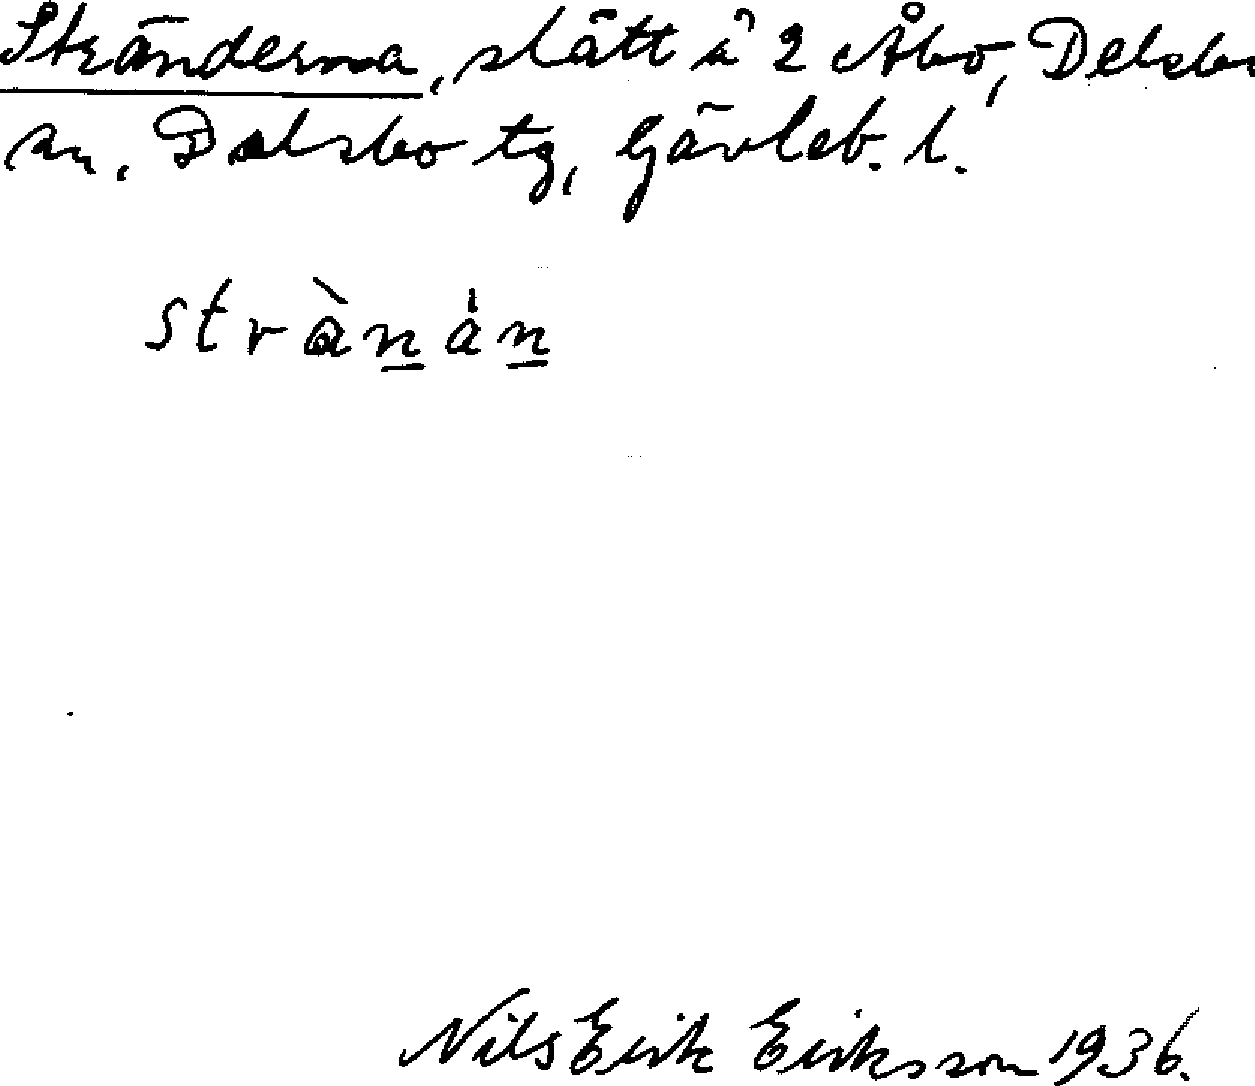 Stränderna, slätt å 2 Åbo, Delsbo
sn, Delsbo tg, Gävleb. l.
stràṉáṉ
Nils Erik Eriksson 1936.